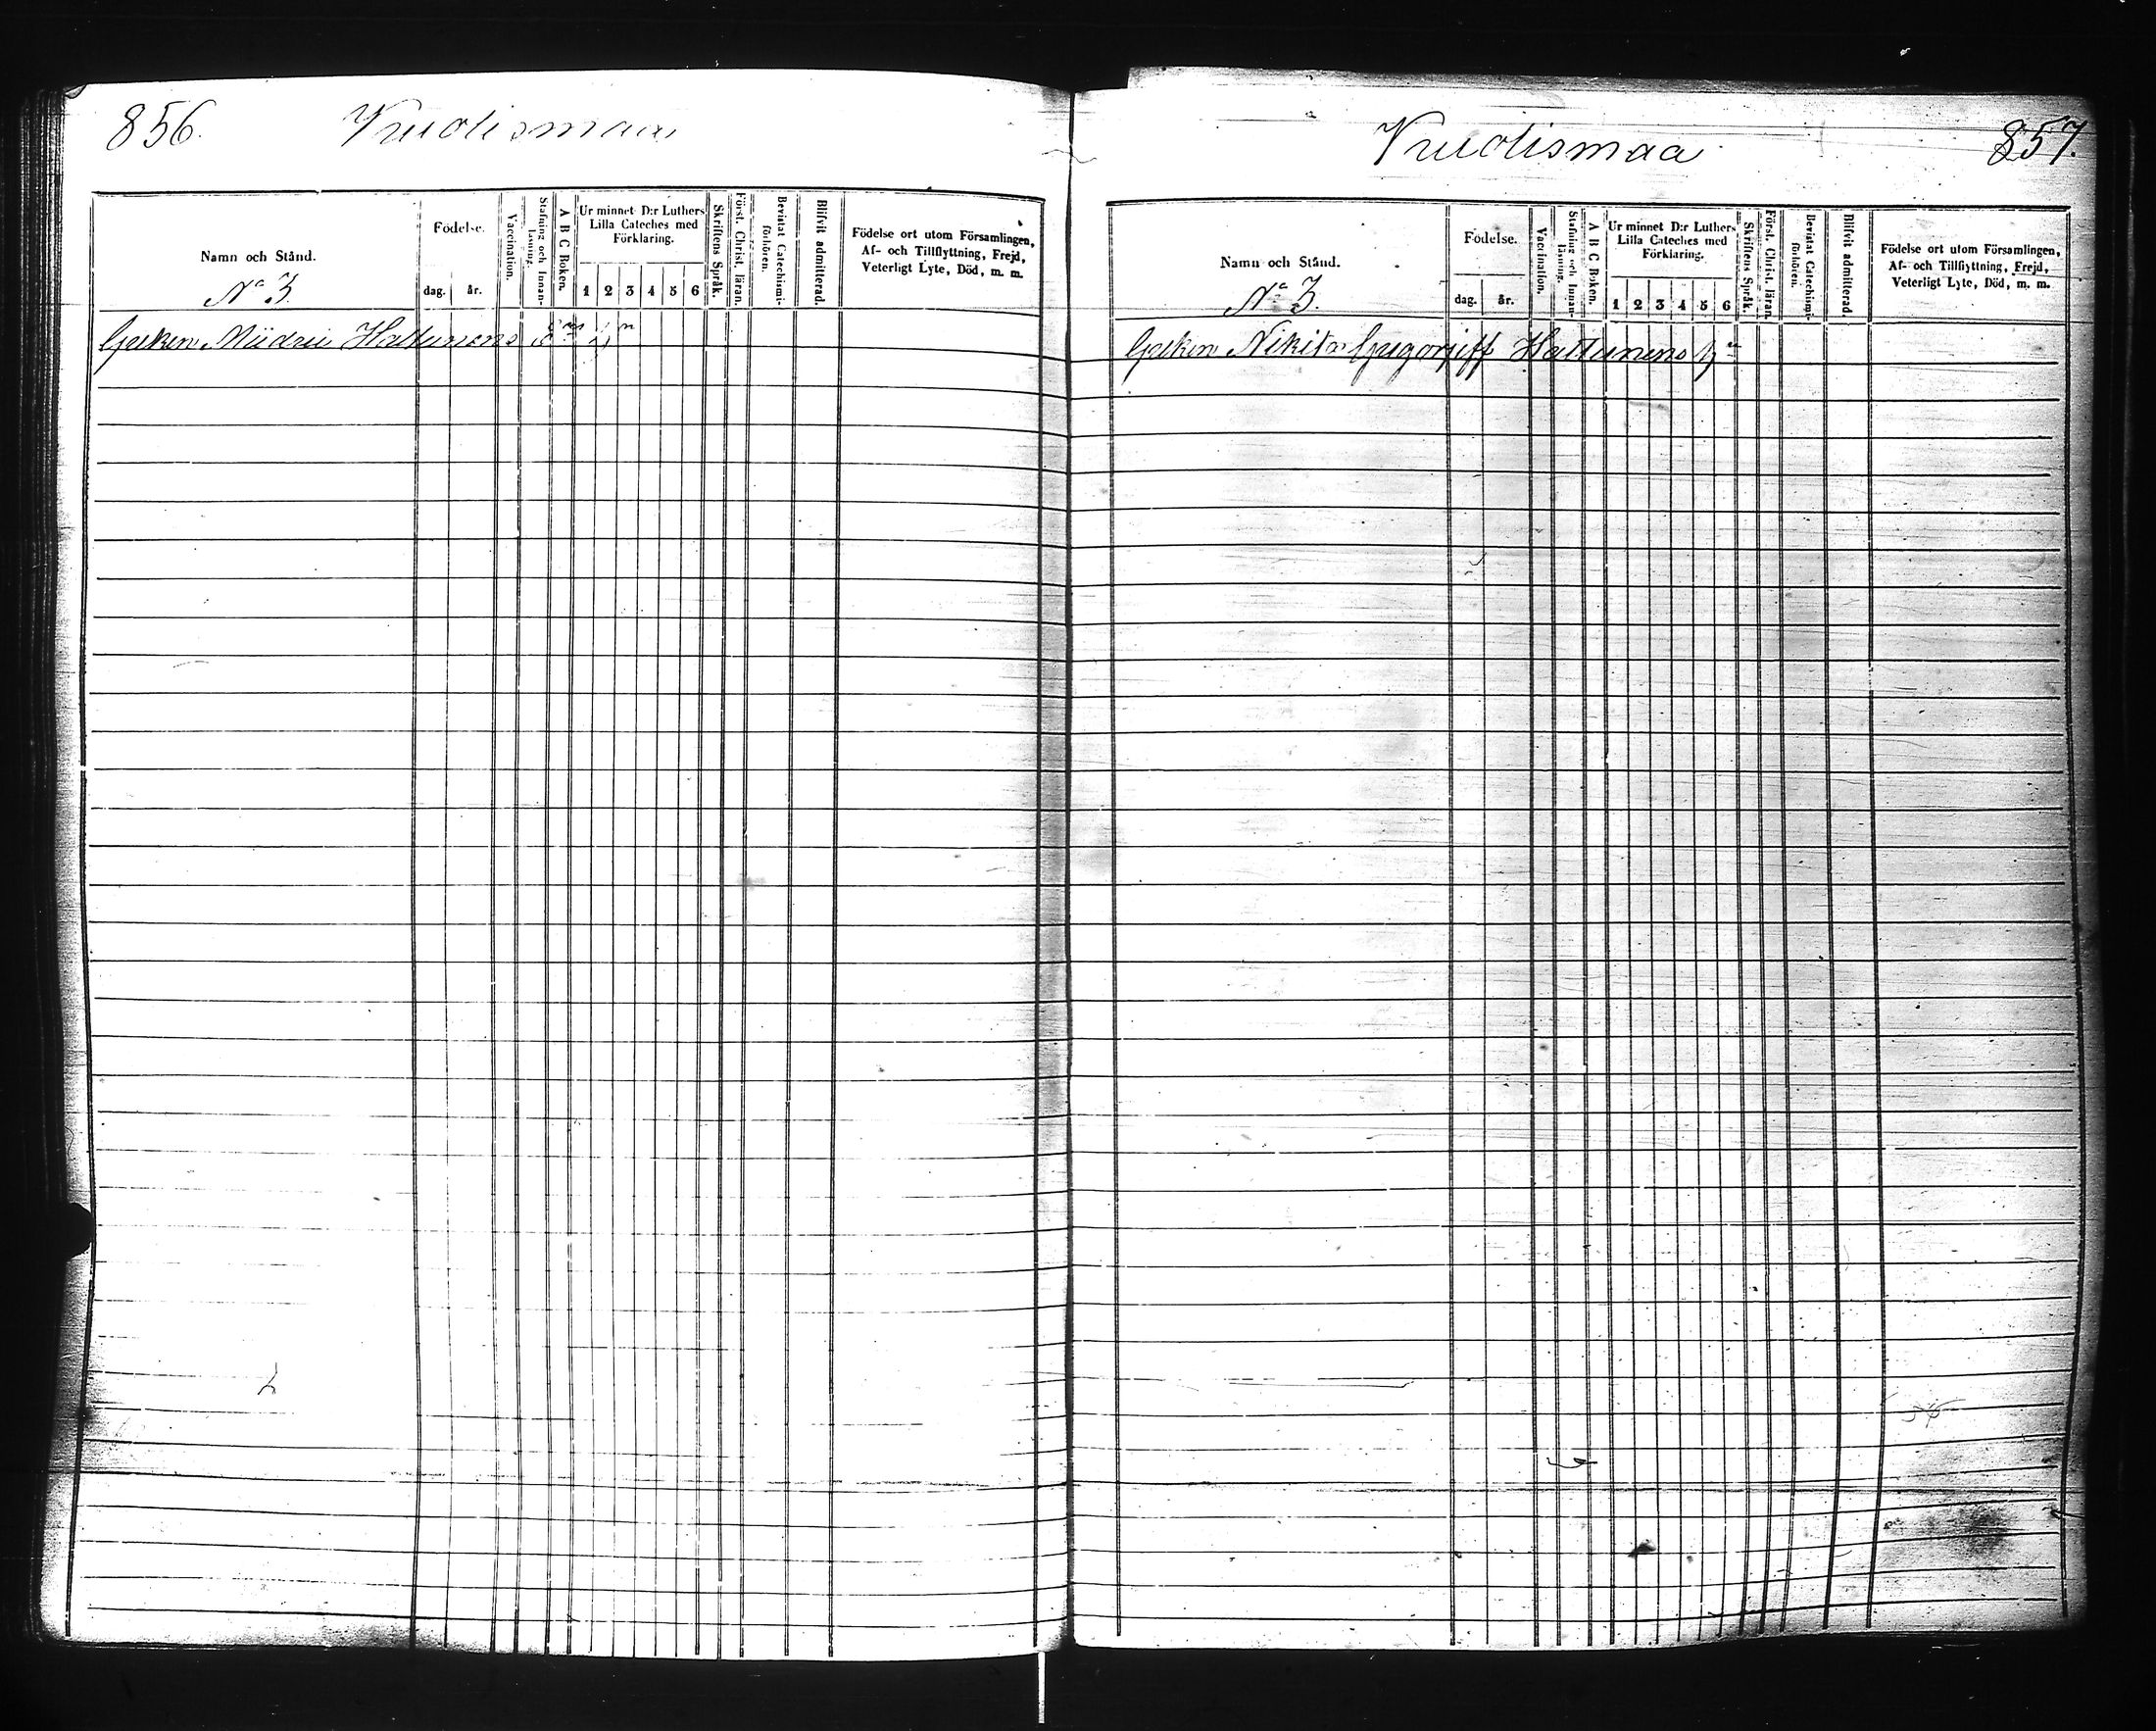 856. Vuotismaa
Namn och Stånd.
No 3
Födelse.
dag. år.
Vaccination.
Stafning och Innanläsning.
A B C Boken.
Ur minnet D:r Luthers
Lilla Cateches med
Förklaring.
1 2 3 4 5 6
Skriftens Språk.
Först. Christ. läran.
Bevistat Catechismiförhören.
Blifvit admitterad.
Födelse ort utom Församlingen,
Af- och Tillflyttning, Frejd,
Veterligt Lyte, Död, m. m.
Greken Miidrei Hattunens
Vuotismaa 857.
Namn och Stånd.
No 3.
Födelse.
dag. år.
Vaccination.
Stafning och Innanläsning.
A B C Boken.
Ur minnet D:r Luthers
Lilla Cateches med
Förklaring.
1 2 3 4 5 6
Skriftens Språk.
Först. Christ. läran.
Bevistat Catechismiförhören.
Blifvit admitterad.
Födelse ort utom Församlingen,
Af- och Tillflyttning, Frejd,
Veterligt Lyte, Död, m. m.
Greken Nikita Gregorjeff Hattunens